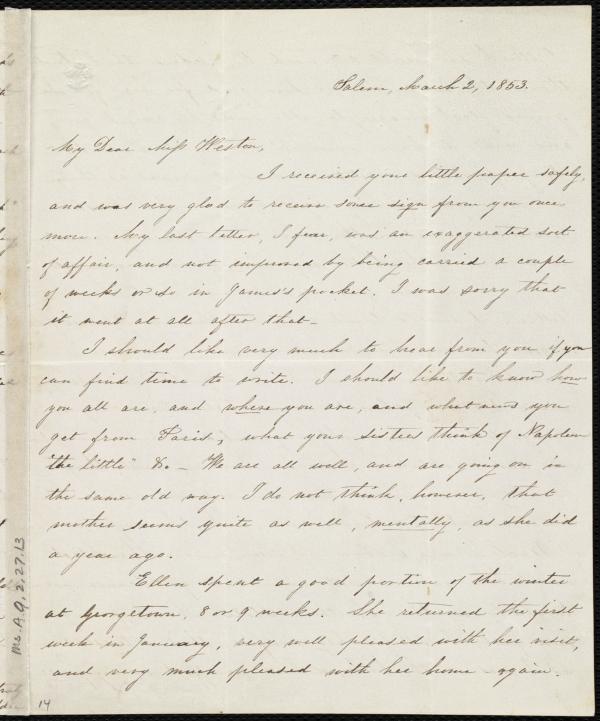 Salem, March 2, 1853.
My Dear Miss Weston,
I received your little paper safely,
and was very glad to receive some sign from you once
more. My last letter, I fear, was an exaggerated sort
of affair, and not improved by being carried a couple
of weeks or so in James's pocket. I was sorry that
it went at all after that -
I should like very much to hear from you if you
can find time to write. I should like to know how
you all are, and where you are, and what news you
get from Paris, what your sisters think of Napoleon
"the little" &c. - We are all well, and are going on in
the same old way. I do not think, however, that
mother seems quite as well, mentally, as she did
a year ago.
Ellen spent a good portion of the winter
at Georgetown, 8 or 9 weeks. She returned the first
week in January, very well pleased with her visit,
and very much pleased with her home again.
Ms. A. 9. 2. 27. 13
14